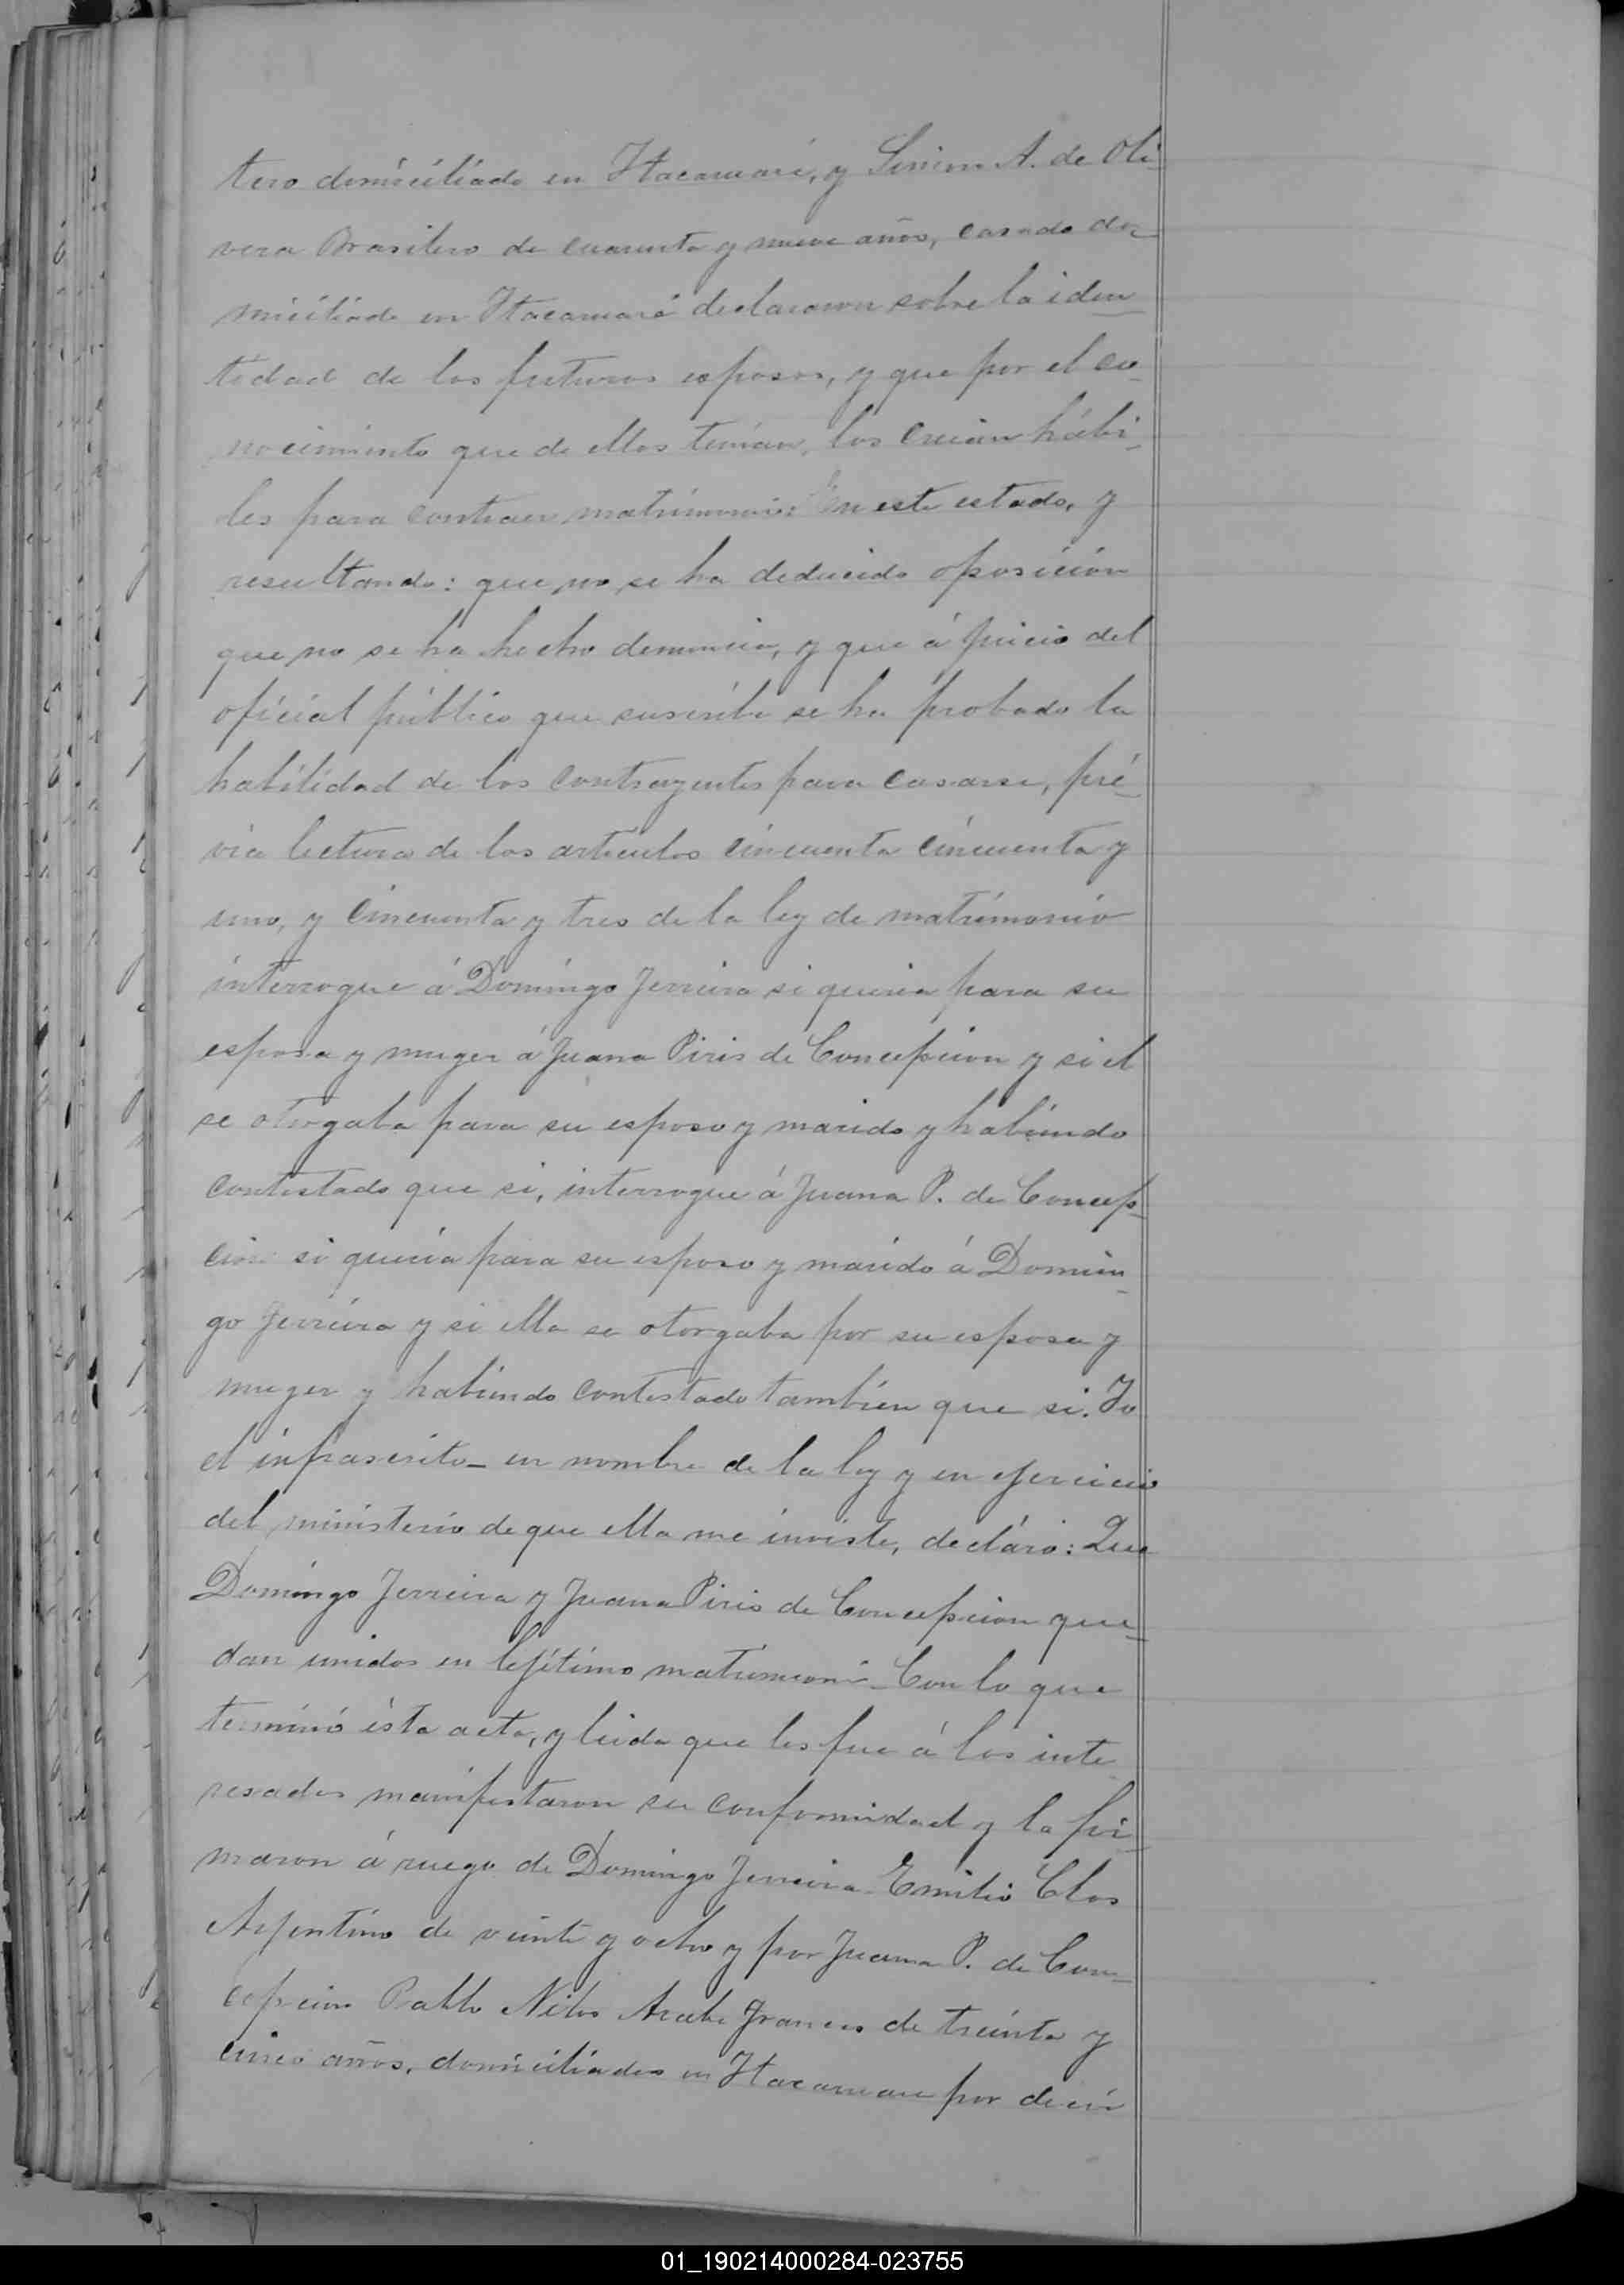 tero domiciliado en Itacaruaré, y Simion A. de Oli-
vera Brasilero de cuarenta y nueve años, casado do-
miciliado en Itacaruaré declararon sobre la iden-
tidad de los futuros esposos, y que por el co-
nocimiento que de ellos tenian, los creian hábi-
les para contraer matrimonio: En este estado, y
resultando: que no se ha deducido oposición
que no se ha hecho denuncia, y que á juicio del
oficial público que suscribe se ha probado la
habilidad de los contrayentes para casarse, pré-
via lectura de los articulos cincuenta cincuenta y
uno, y cincuenta y tres de la ley de matrimonio
interrogue á Domingo Ferreira si queria para su
esposa y muger á Juana Piris de Concepcion y si el
se otorgaba para su esposo y marido y habiendo
contestado que si, interrogue á Juana P. de Concep-
cion si queria para su esposo y marido á Domin-
go Ferreira y si ella se otorgaba por su esposa y
muger y habiendo contestado también que si. Yo
el infrascrito - en nombre de la ley y en ejercicio
del ministerio de que ella me inviste, declaro: Que
Domingo Ferreira y Juana Piris de Concepcion que-
dan unidos en lejítimo matrimonio - Con lo que
terminó ésta acta, y leida que les fue á los inte-
resados manifestaron su conformidad y la fir-
maron á ruego de Domingo Ferreira Emilio Clos
Arjentino de veinte y ocho y por Juana P. de Con-
cepcion Pablo Frances de treinta y
cinco años, domiciliados en Itacaruare por decir
01_190214000284-023755